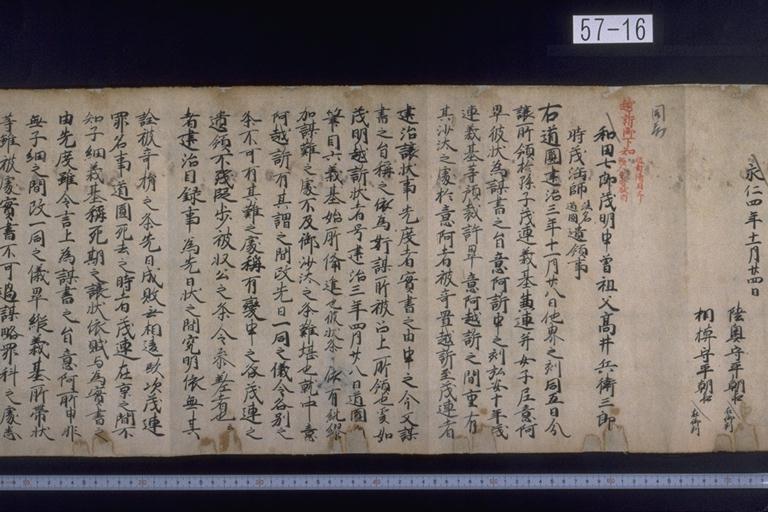 57-16
永仁四年十一月廿四日
陸奥守平朝臣 在御判
相模守平朝臣 在御判
同前
和田七郎茂明申曽祖父高井兵衛三郎
時茂法師 法名道円 遺領事
右道圓建治三年十一月廿八日他界之刻同五日分
譲所領於孫子茂連義基茂連并女子尼意阿
畢彼状為謀書之旨意阿訴申之刻弘安十年茂
連義基等預裁許畢意阿越訴之間重有
其沙汰之處於意阿者被棄置越訴至茂連者
建治譲状事先度者實書之由申之今又謀
書之旨稱之依為奸謀所被召上所領也爰如
茂明越訴状者号建治三年四月廿八日道圓
筆目六義基始所備進也彼状条々依有紕繆
加謀難之處不及御沙汰之条難堪也就中意
阿越訴有其謂之間改先日一同之儀令各別之
条不可有其難之處稱有變申之咎茂連之
遺領不残段歩被収公之条令参差者也
者建治目録事為先日状之間究明依無其
詮被棄捐之条先日成敗無相違歟次茂連
罪名事道圓死去之時者茂連在京之間不
知子細義基稱死期之譲状依賦与為實書之
由先度雖令言上為謀書之旨意阿所申非
無子細之間改一同之儀畢縦義基所帯状
等雖被處實書不可過謀略罪科之處悉